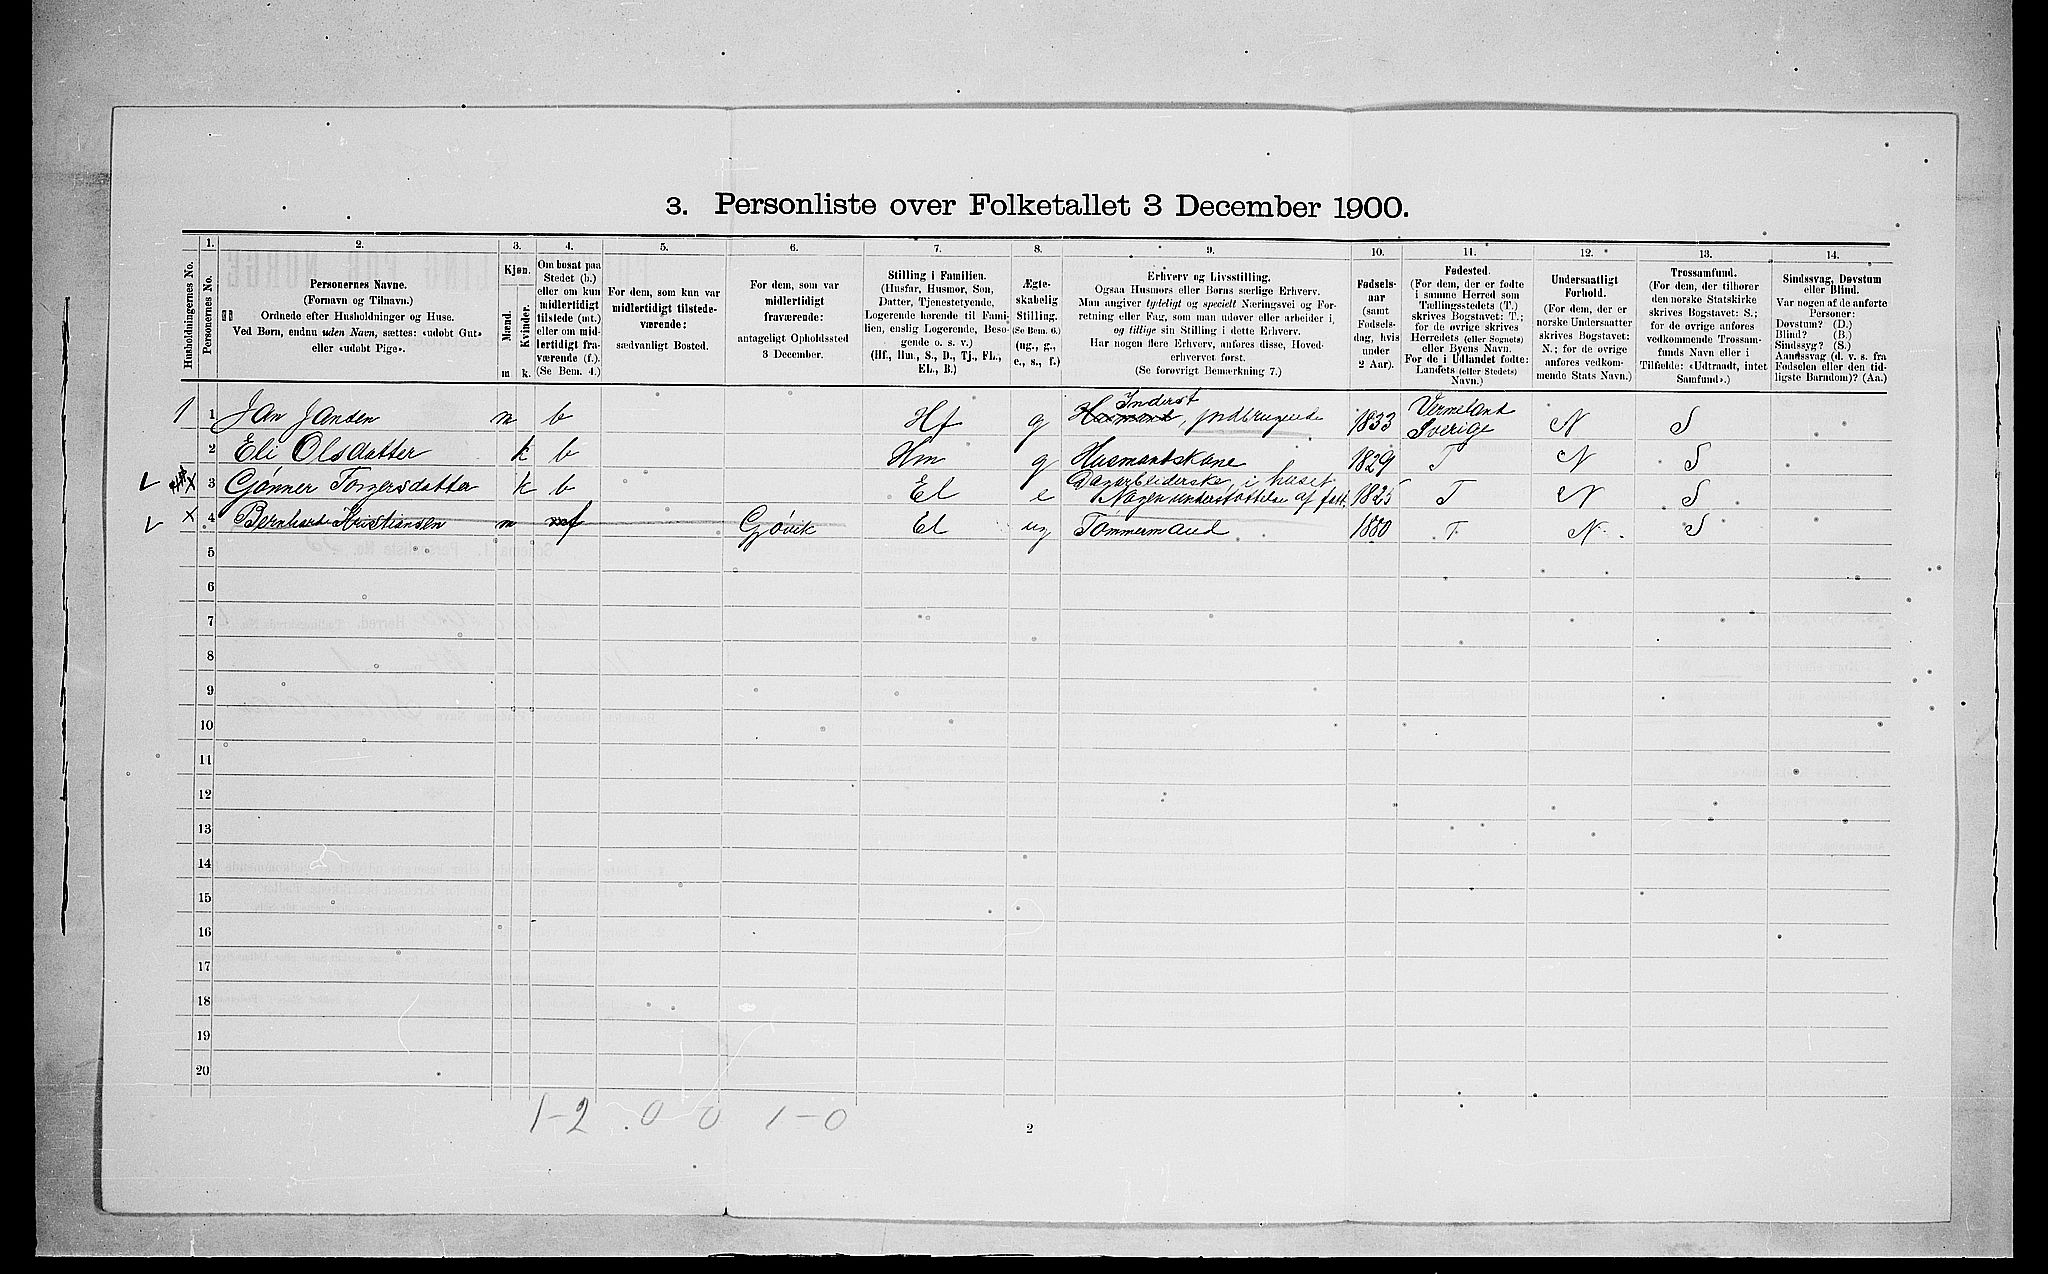 3. Personliste over Folketallet 3 December 1900.
Husholdningernes No.
1.
Personernes No.
2.
Personernes Navne.
(Fornavn og Tilnavn.)
Ordnede efter Husholdninger og Huse.
Ved Børn, endnu uden Navn, sættes: «udøbt Gut»
eller «udøbt Pige».
3.
Kjøn.
Mænd.
Kvinder.
m
k.
4.
Om bosat paa
Stedet (b.)
eller om kun
midlertidigt
tilstede (mt.)
eller om mid-
lertidigt fra-
værende (f.).
(Se Bem. 4.)
5.
For dem, som kun var
midlertidigt tilstede-
værende:
sædvanligt Bosted.
6.
For dem, som var
midlertidigt
fraværende:
antageligt Opholdssted
3 December.
7.
Stilling i Familien.
(Husfar, Husmor, Søn,
Datter, Tjenestetyende,
Logerende hørende til Fami-
lien, enslig Logerende, Besø-
gende o. s. v.)
(Hf., Hm., S., D., Tj., FL.,
EL., B.)
8.
Ægte-
skabelig
Stilling.
(Se Bem. 6.)
(ug., g.,
e., s., f.)
9.
Erhverv og Livsstilling.
Ogsaa Husmors eller Børns særlige Erhverv.
Man angiver tydeligt og specielt Næringsvei og For-
retning eller Fag, som man udøver eller arbeider i,
og tillige sin Stilling i dette Erhverv.
Har nogen flere Erhverv, anføres disse, Hoved-
erhvervet først.
(Se forøvrigt Bemærkning 7.)
10.
Fødsels-
aar
(samt
Fødsels-
dag, hvis
under
2 Aar).
11.
Fødested.
(For dem, der er fødte
i samme Herred som
Tællingsstedets (T.)
skrives Bogstavet: T.;
for de øvrige skrives
Herredets (eller Sognets)
eller Byens Navn.
For de i Udlandet fødte:
Landets (eller Stedets)
Navn.)
12.
Undersaatligt
Forhold.
(For dem, der er
norske Undersaatter
skrives Bogstavet:
N.; for de øvrige
anføres vedkom-
mende Stats Navn.)
13.
Trossamfund.
(For dem, der tilhører
den norske Statskirke
skrives Bogstavet: S.;
for de øvrige anføres
vedkommende Trossam-
funds Navn eller i
Tilfælde: «Udtraadt, intet
Samfund».)
14.
Sindssvag, Døvstum
eller Blind.
Var nogen af de anførte
Personer:
Døvstum? (D.)
Blind? (B.)
Sindssyg? (S.)
Aandssvag (d. v. s. fra
Fødselen eller den tid-
ligste Barndom)? (Aa.)
Inderst
1 1 Jan Jansen m b Hf g Husmand, jordbrugende 1833 Vermeland Sverige N S
2 Eli Olsdatter k b Hm g Husmandskone 1829 T N S
Dagarbeiderske, i huset
x 3 Gønner Torgersdatter k b El e Nogen understøttelse af fatt. 1825 T N S
x 4 Bernhard Kristiansen m f Gjøvik El ug Tømmermand 1880 T N S
5
6
7
8
9
10
11
12
13
14
15
16
17
18
19
20
1-2 0 0 1-0
2